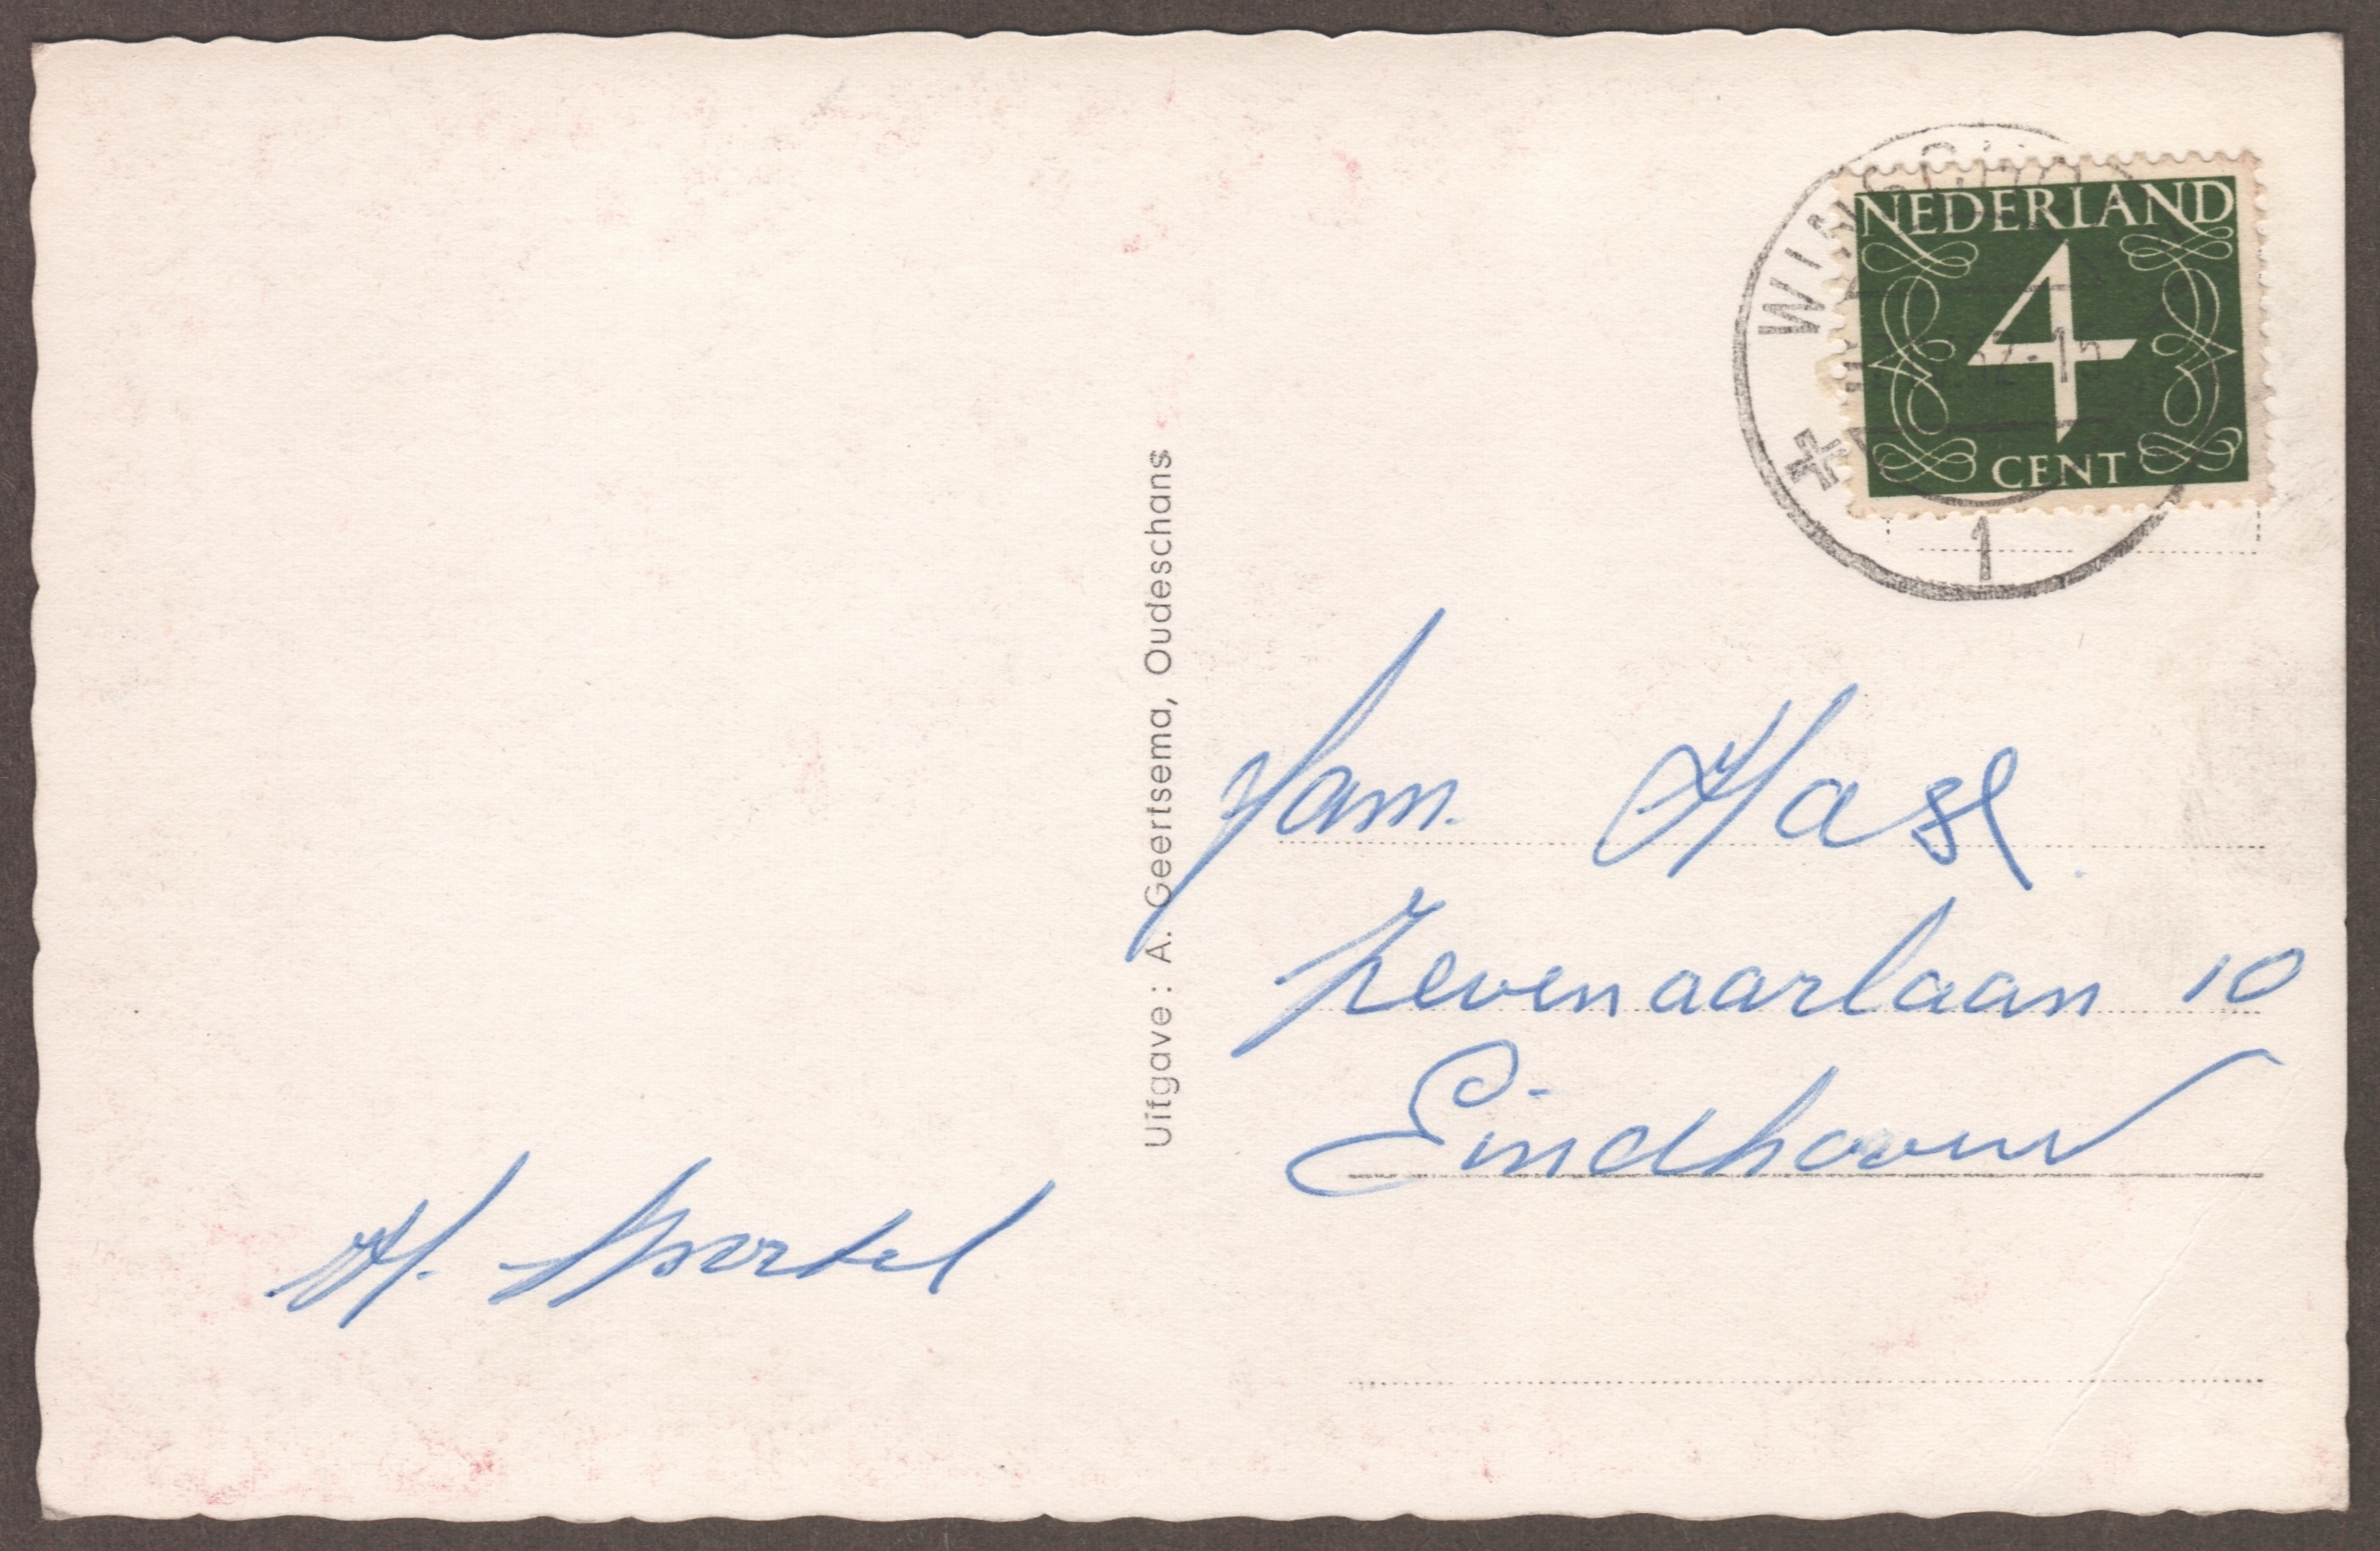 NEDERLAND
4
CENT
1
Uitgave : A. Geertsema, Oudeschans
Fam.
Zevenaarlaan 10
Eindhoven
H.